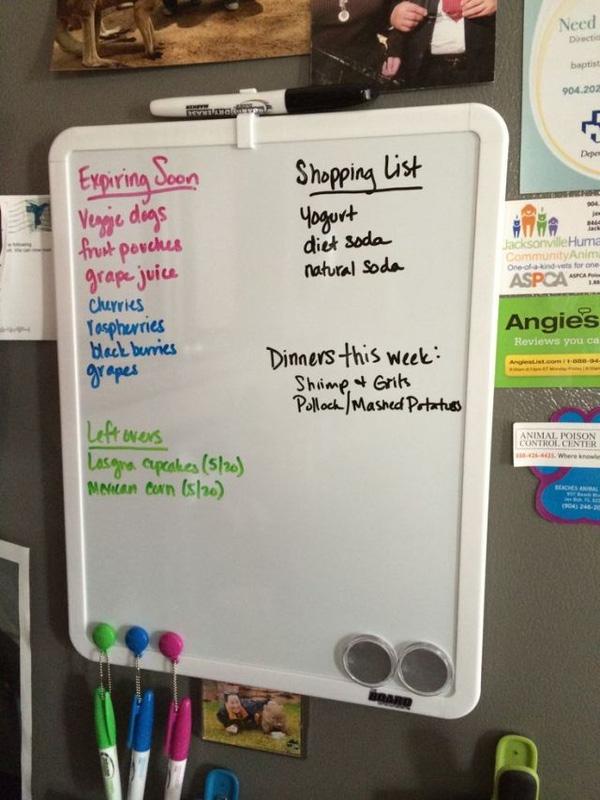 DRY ERASE
MARKER
Expiring Soon
Veggie dogs
fruit pouches
grape juice
cherries
raspberries
blackberries
grapes
Leftovers
Lasgna cupcakes (5/20)
Mexican corn (5/20)
Shopping List
Yogurt
diet soda
natural soda
Dinners this week:
Shrimp & Grits
Pollock/Mashed Potatoes
BOARD
Need
Directi
baptist
904.202
Depen
904.
Jacksonville Huma
Community Anima
One-of-a-kind-vets for one-
ASPCA
ASPCA Poiso
Angie's
Reviews you ca
AngiesList.com | 1-888-94
ANIMAL POISON
CONTROL CENTER
888-426-4435. Where knowle
BEACHES ANIMAL
(904) 246-20